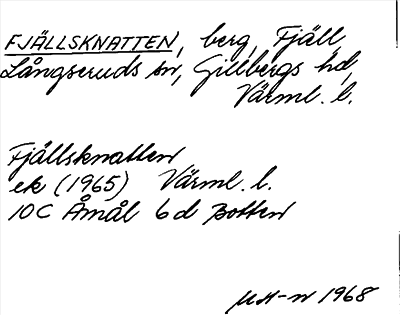 FJÄLLSKNATTEN, berg, Fjäll,
Långseruds sn, Gillbergs hd,
Värml. l.
Fjällsknatten
ek (1965) Värml. l.
10C Åmål 6d Botten
1968